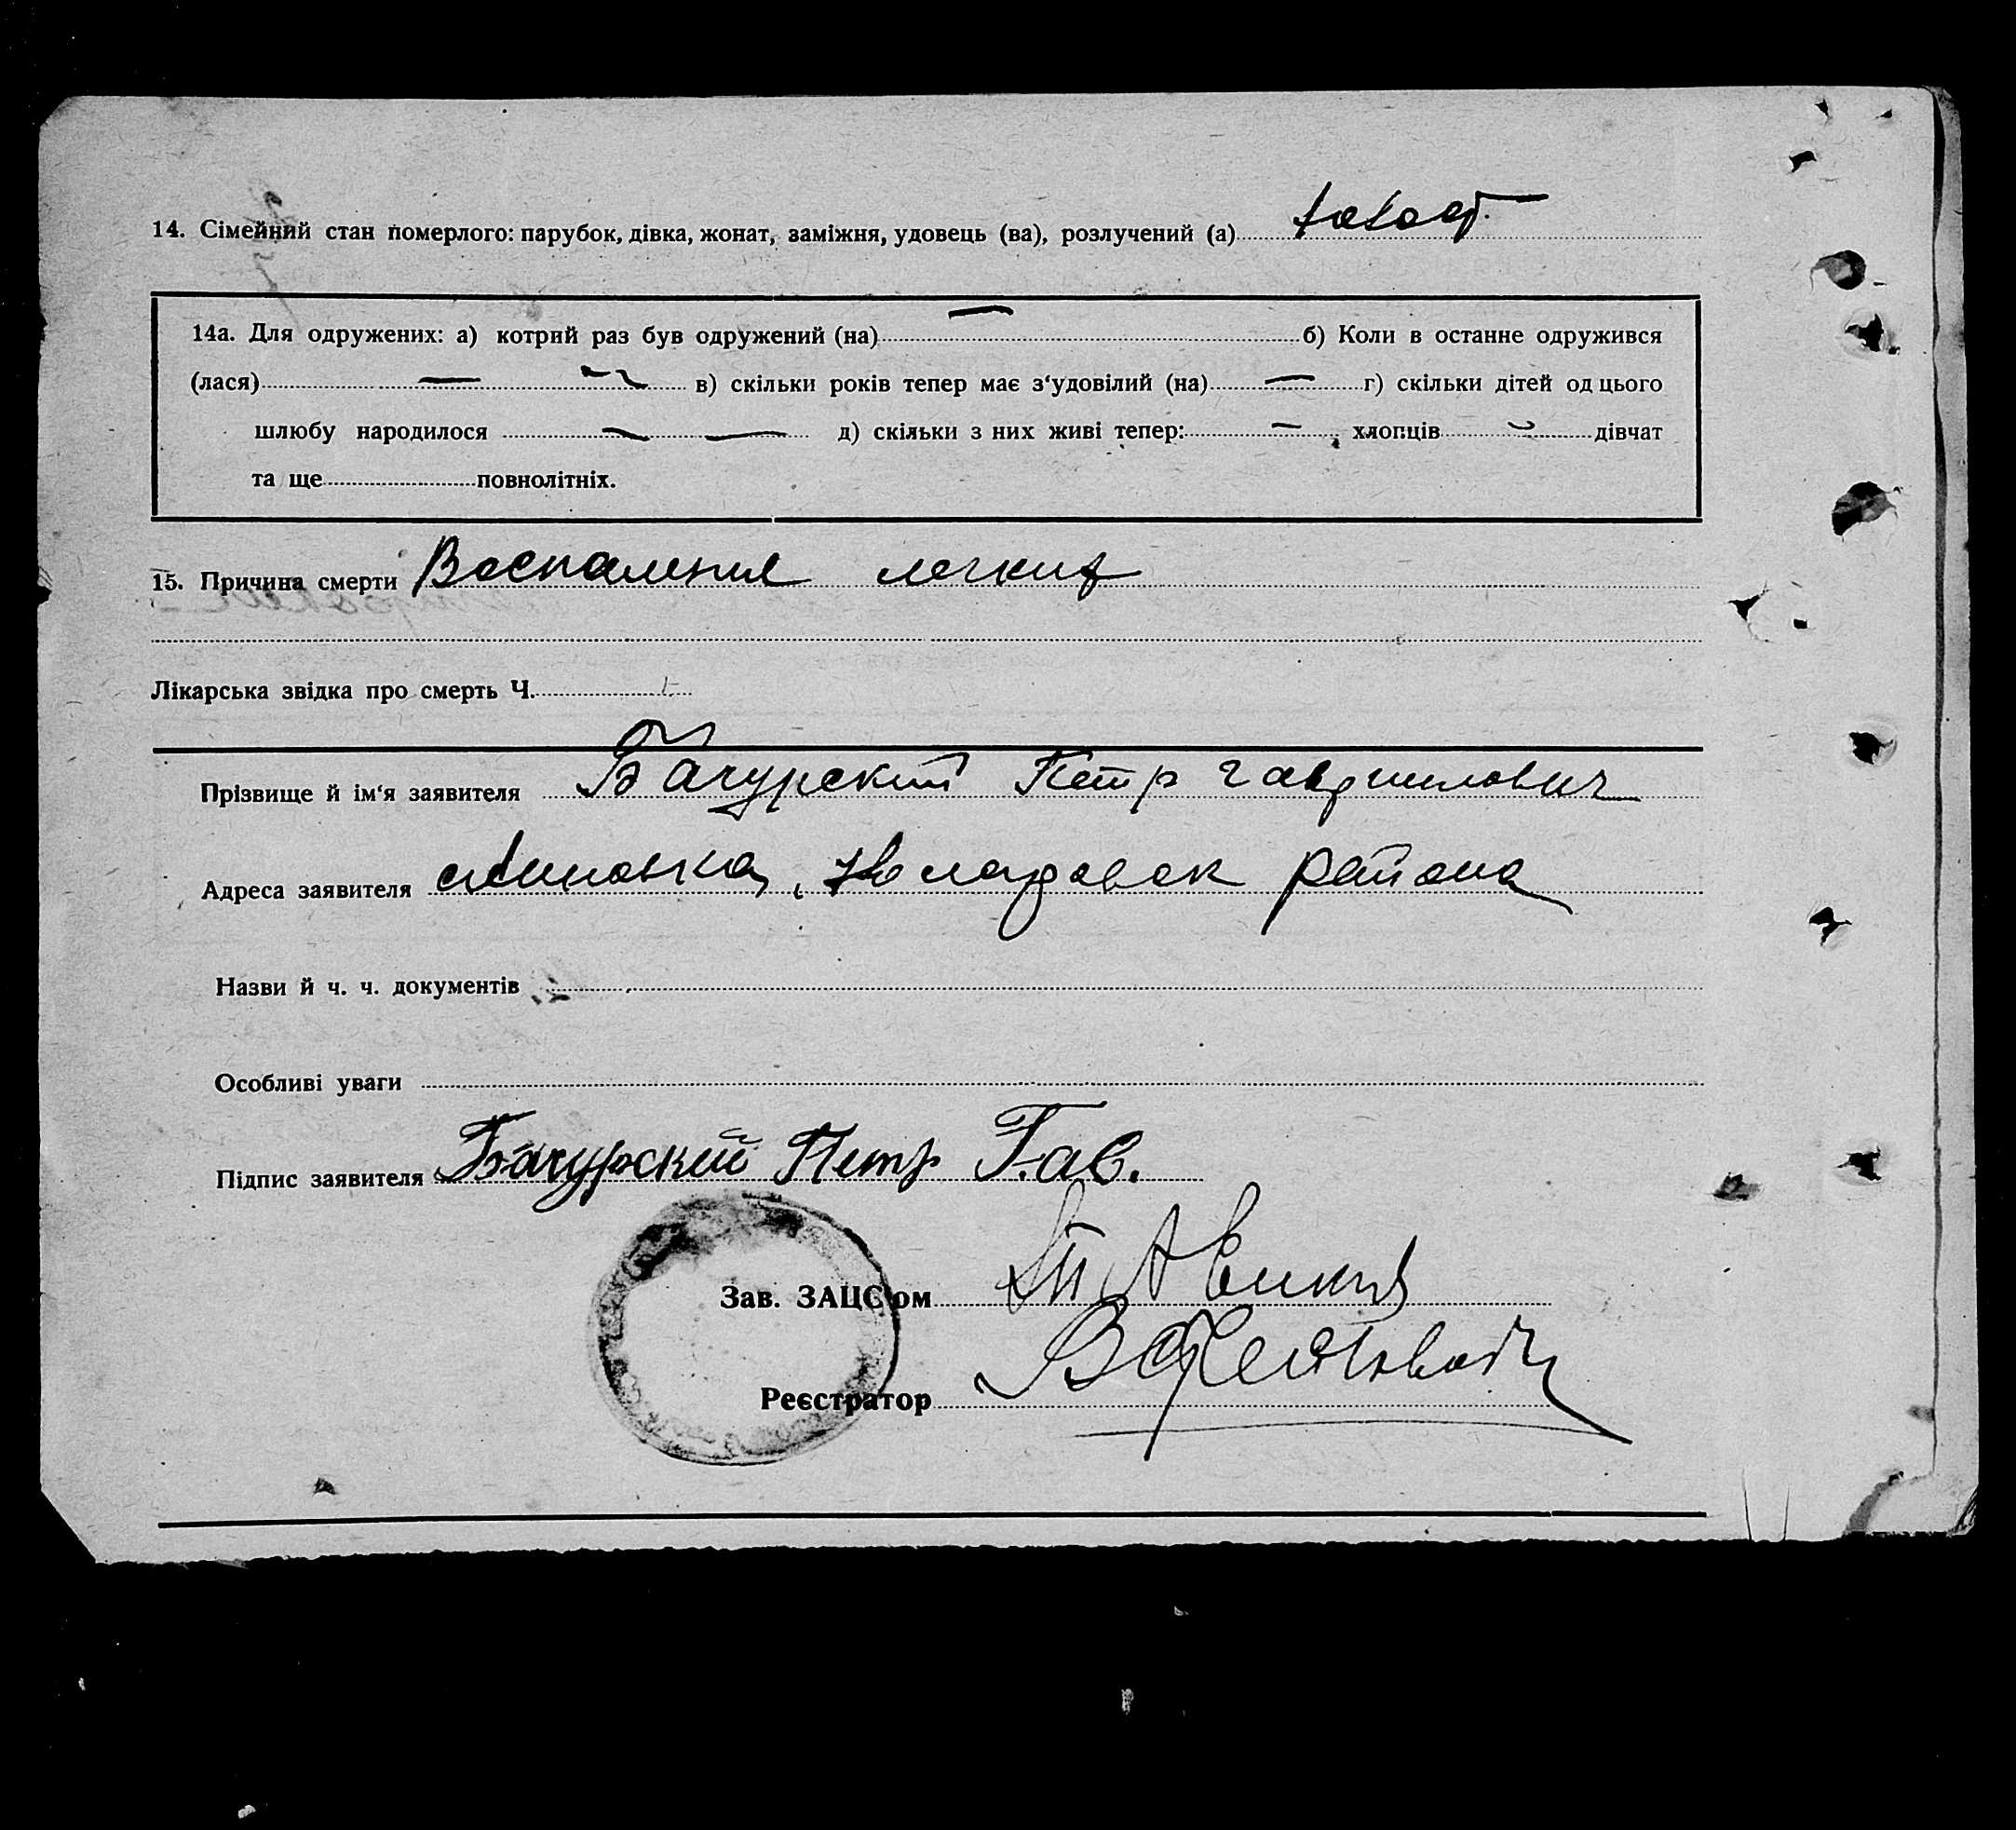 14. Сімейний стан померлого: парубок, дівка, жонат, заміжня, удовець (ва), розлучений (а)
14а. Для одружених: а) котрий раз був одружений (на) — б) Коли в останне одружився
(лася) — в) скільки років тепер має з‘удовілий (на) — г) скільки дітей од цього
шлюбу народилося — — д) скільки з них живі тепер: — , хлопців — дівчат
та ще повнолітніх.
15. Причина смерти Воспаления легких
Лікарська звідка про смерть Ч.
Прізвище й ім‘я заявителя Бачурский Петр Гаврилович
Адреса заявителя района
Назви й ч. ч. документів
Особливі уваги
Підпис заявителя Бачурский Петр Гав.
Зав. ЗАЦС‘ом
Реєстратор